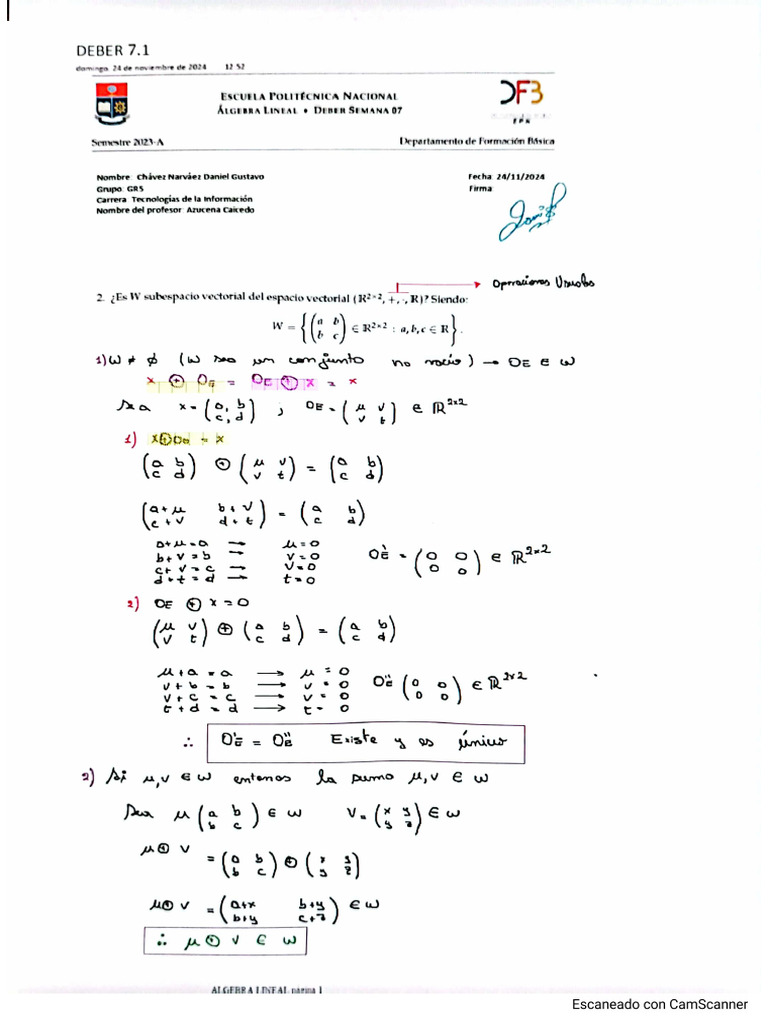 DEBER 7.1
domingo, 24 de noviembre de 2024 12:52
ESCUELA POLITÉCNICA NACIONAL
ÁLGEBRA LINEAL • DEBER SEMANA 07
DFB
EPN
Semestre 2023-A
Departamento de Formación Básica
Nombre: Chávez Narváez Daniel Gustavo
Fecha: 24/11/2024
Grupo: GR5
Firma:
Carrera: Tecnologías de la Información
Nombre del profesor: Azucena Caicedo
Operaciones Usuales
2. ¿Es W subespacio vectorial del espacio vectorial (ℝ²ˣ², +, ·, ℝ)? Siendo:
W = { (a b; b c) ∈ ℝ²ˣ² : a, b, c ∈ ℝ }.
1) W ≠ ∅ (W sea un conjunto no vacío) → OE ∈ W
x ⊕ OE = OE ⊕ x = x
Sea x = (a, b; c, d) ; OE = (μ v; v t) ∈ ℝ²ˣ²
1) x ⊕ OE = x
(a b; c d) ⊕ (μ v; v t) = (a b; c d)
(a+μ b+v; c+v d+t) = (a b; c d)
a+μ=a → μ=0
b+v=b → v=0
c+v=c → v=0
d+t=d → t=0
OE' = (0 0; 0 0) ∈ ℝ²ˣ²
2) OE ⊕ x = 0
(μ v; v t) ⊕ (a b; c d) = (a b; c d)
μ+a=a → μ=0
v+b=b → v=0
v+c=c → v=0
t+d=d → t=0
OE'' (0 0; 0 0) ∈ ℝ²ˣ²
∴ OE' = OE'' Existe y es único
2) Si μ,v ∈ W entonces la suma μ,v ∈ W
Sea μ (a b; b c) ∈ W V = (x y; y z) ∈ W
μ ⊕ v
= (a b; b c) ⊕ (x y; y z)
μ ⊕ v = (a+x b+y; b+y c+z) ∈ W
∴ μ ⊕ v ∈ W
ALGEBRA LINEAL página 1
Escaneado con CamScanner